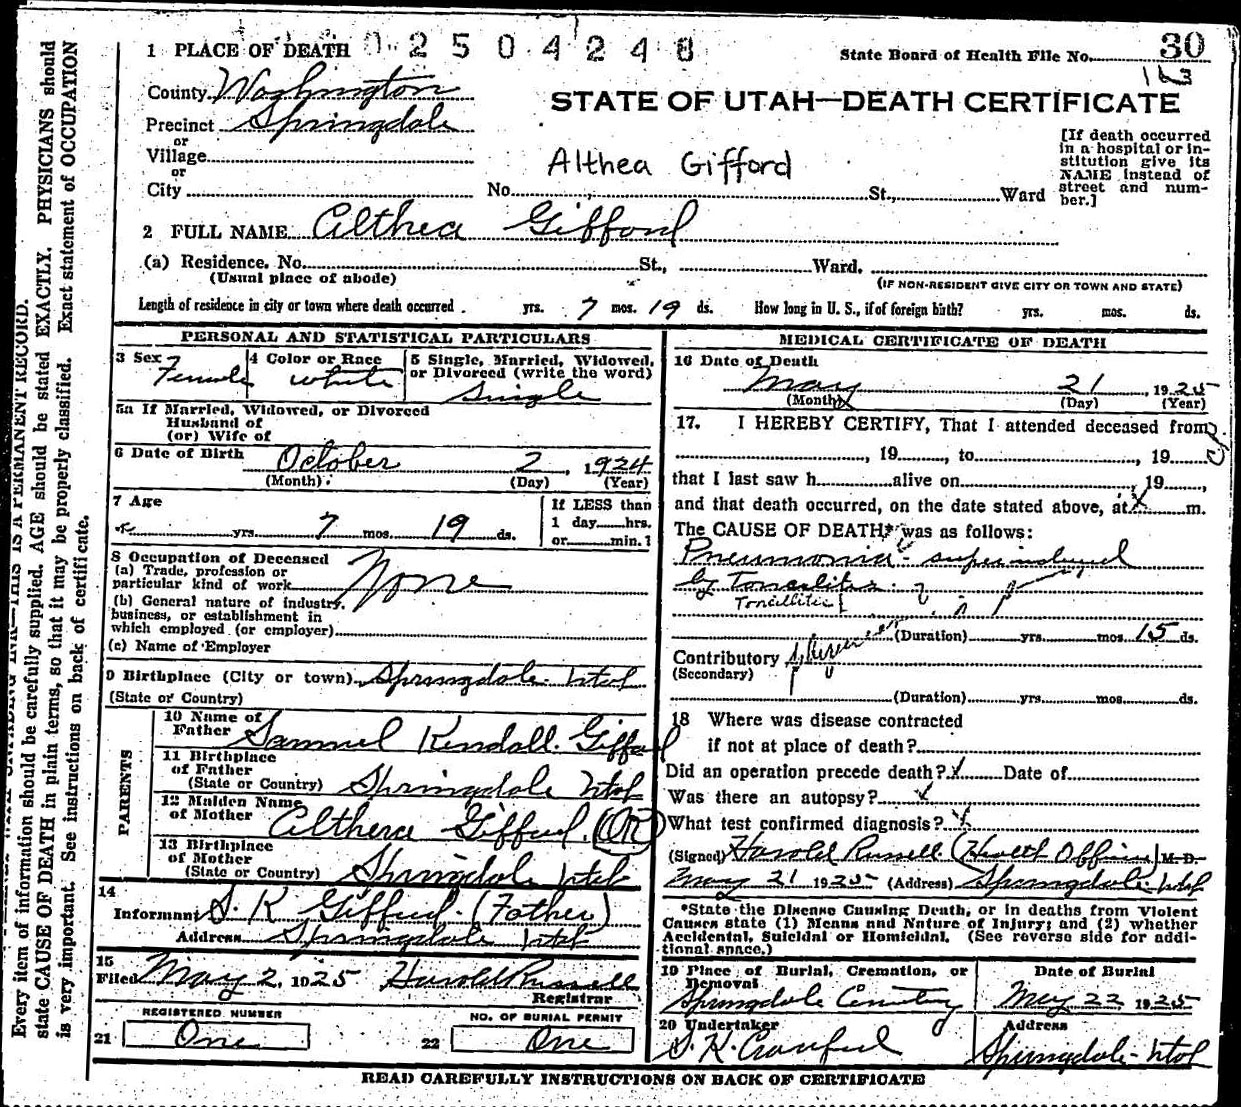 1 PLACE OF DEATH 02504248
State Board of Health File No. 30
113
County Washington
STATE OF UTAH—DEATH CERTIFICATE
Precinct Springdale
or
Village
or
City No. St., Ward
[If death occurred in a hospital or institution give its NAME instead of street and number.]
Althea Gifford
2 FULL NAME Althea Gifford
(a) Residence. No. St., Ward.
(Usual place of abode) (IF NON-RESIDENT GIVE CITY OR TOWN AND STATE)
Length of residence in city or town where death occurred yrs. 7 mos. 19 ds. How long in U. S., if of foreign birth? yrs. mos. ds.
PERSONAL AND STATISTICAL PARTICULARS
3 Sex Female
4 Color or Race white
5 Single, Married, Widowed,
or Divorced (write the word)
Single
5a If Married, Widowed, or Divorced
Husband of
(or) Wife of
6 Date of Birth October 2, 1924
(Month) (Day) (Year)
7 Age
yrs. 7 mos. 19 ds.
If LESS than
1 day hrs.
or min.?
8 Occupation of Deceased
(a) Trade, profession or
particular kind of work None
(b) General nature of industry,
business, or establishment in
which employed (or employer)
(c) Name of Employer
9 Birthplace (City or town) Springdale Utah
(State or Country)
PARENTS
10 Name of
Father Samuel Kendall Gifford
11 Birthplace
of Father
(State or Country) Springdale Utah
12 Maiden Name
of Mother Althera Gifford. (OR)
13 Birthplace
of Mother
(State or Country) Springdale Utah
14
Informant S. K Gifford (Father)
Address Springdale Utah
15
Filed May 2, 1925 Harold Russell
Registrar
REGISTERED NUMBER
21 One
NO. OF BURIAL PERMIT
22 One
MEDICAL CERTIFICATE OF DEATH
16 Date of Death
May 21, 1925
(Month) (Day) (Year)
17. I HEREBY CERTIFY, That I attended deceased from
, 19 , to , 19
that I last saw h alive on , 19 ,
and that death occurred, on the date stated above, at m.
The CAUSE OF DEATH* was as follows:
Pneumonia superinduced
by toncilitis
Toncillitis
(Duration) yrs. mos. 15 ds.
Contributory
(Secondary)
(Duration) yrs. mos. ds.
18 Where was disease contracted
if not at place of death?
Did an operation precede death? Date of
Was there an autopsy?
What test confirmed diagnosis?
(Signed) Harold Russell (Health Officer) M. D.
May 21 1925 (Address) Springdale Utah
*State the Disease Causing Death, or in deaths from Violent
Causes state (1) Means and Nature of Injury; and (2) whether
Accidental, Suicidal or Homicidal. (See reverse side for addi-
tional space.)
19 Place of Burial, Cremation, or
Removal
Springdale Cemetery
Date of Burial
May 22, 1925
20 Undertaker
S. K. Crawford
Address
Springdale - Utah
READ CAREFULLY INSTRUCTIONS ON BACK OF CERTIFICATE
THIS IS A PERMANENT RECORD.
Every item of information should be carefully supplied. AGE should be stated EXACTLY. PHYSICIANS should
state CAUSE OF DEATH in plain terms, so that it may be properly classified. Exact statement of OCCUPATION
is very important. See instructions on back of certificate.